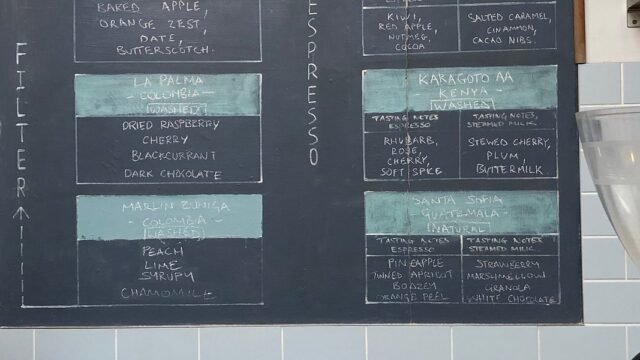 FILTER
BAKED APPLE,
ORANGE ZEST,
DATE,
BUTTERSCOTCH.
LA PALMA
- COLOMBIA -
WASHED
DRIED RASPBERRY
CHERRY
BLACKCURRANT
DARK CHOCOLATE
MARLIN ZUNIGA
- COLOMBIA -
WASHED
PEACH
LIME
SYRUPY
CHAMOMILE
ESPRESSO
KIWI,
RED APPLE,
NUTMEG,
COCOA
SALTED CARAMEL,
CINAMMON,
CACAO NIBS.
KARAGOTO AA
- KENYA -
WASHED
TASTING NOTES
ESPRESSO
RHUBARB,
ROSE,
CHERRY,
SOFT SPICE
TASTING NOTES,
STEAMED MILK.
STEWED CHERRY,
PLUM,
BUTTERMILK
SANTA SOFIA
- GUATEMALA -
NATURAL
TASTING NOTES
ESPRESSO
PINEAPPLE
TINNED APRICOT
BOOZEY
ORANGE PEEL
TASTING NOTES
STEAMED MILK
STRAWBERRY
MARSHMELLOW
GRANOLA
WHITE CHOCOLATE